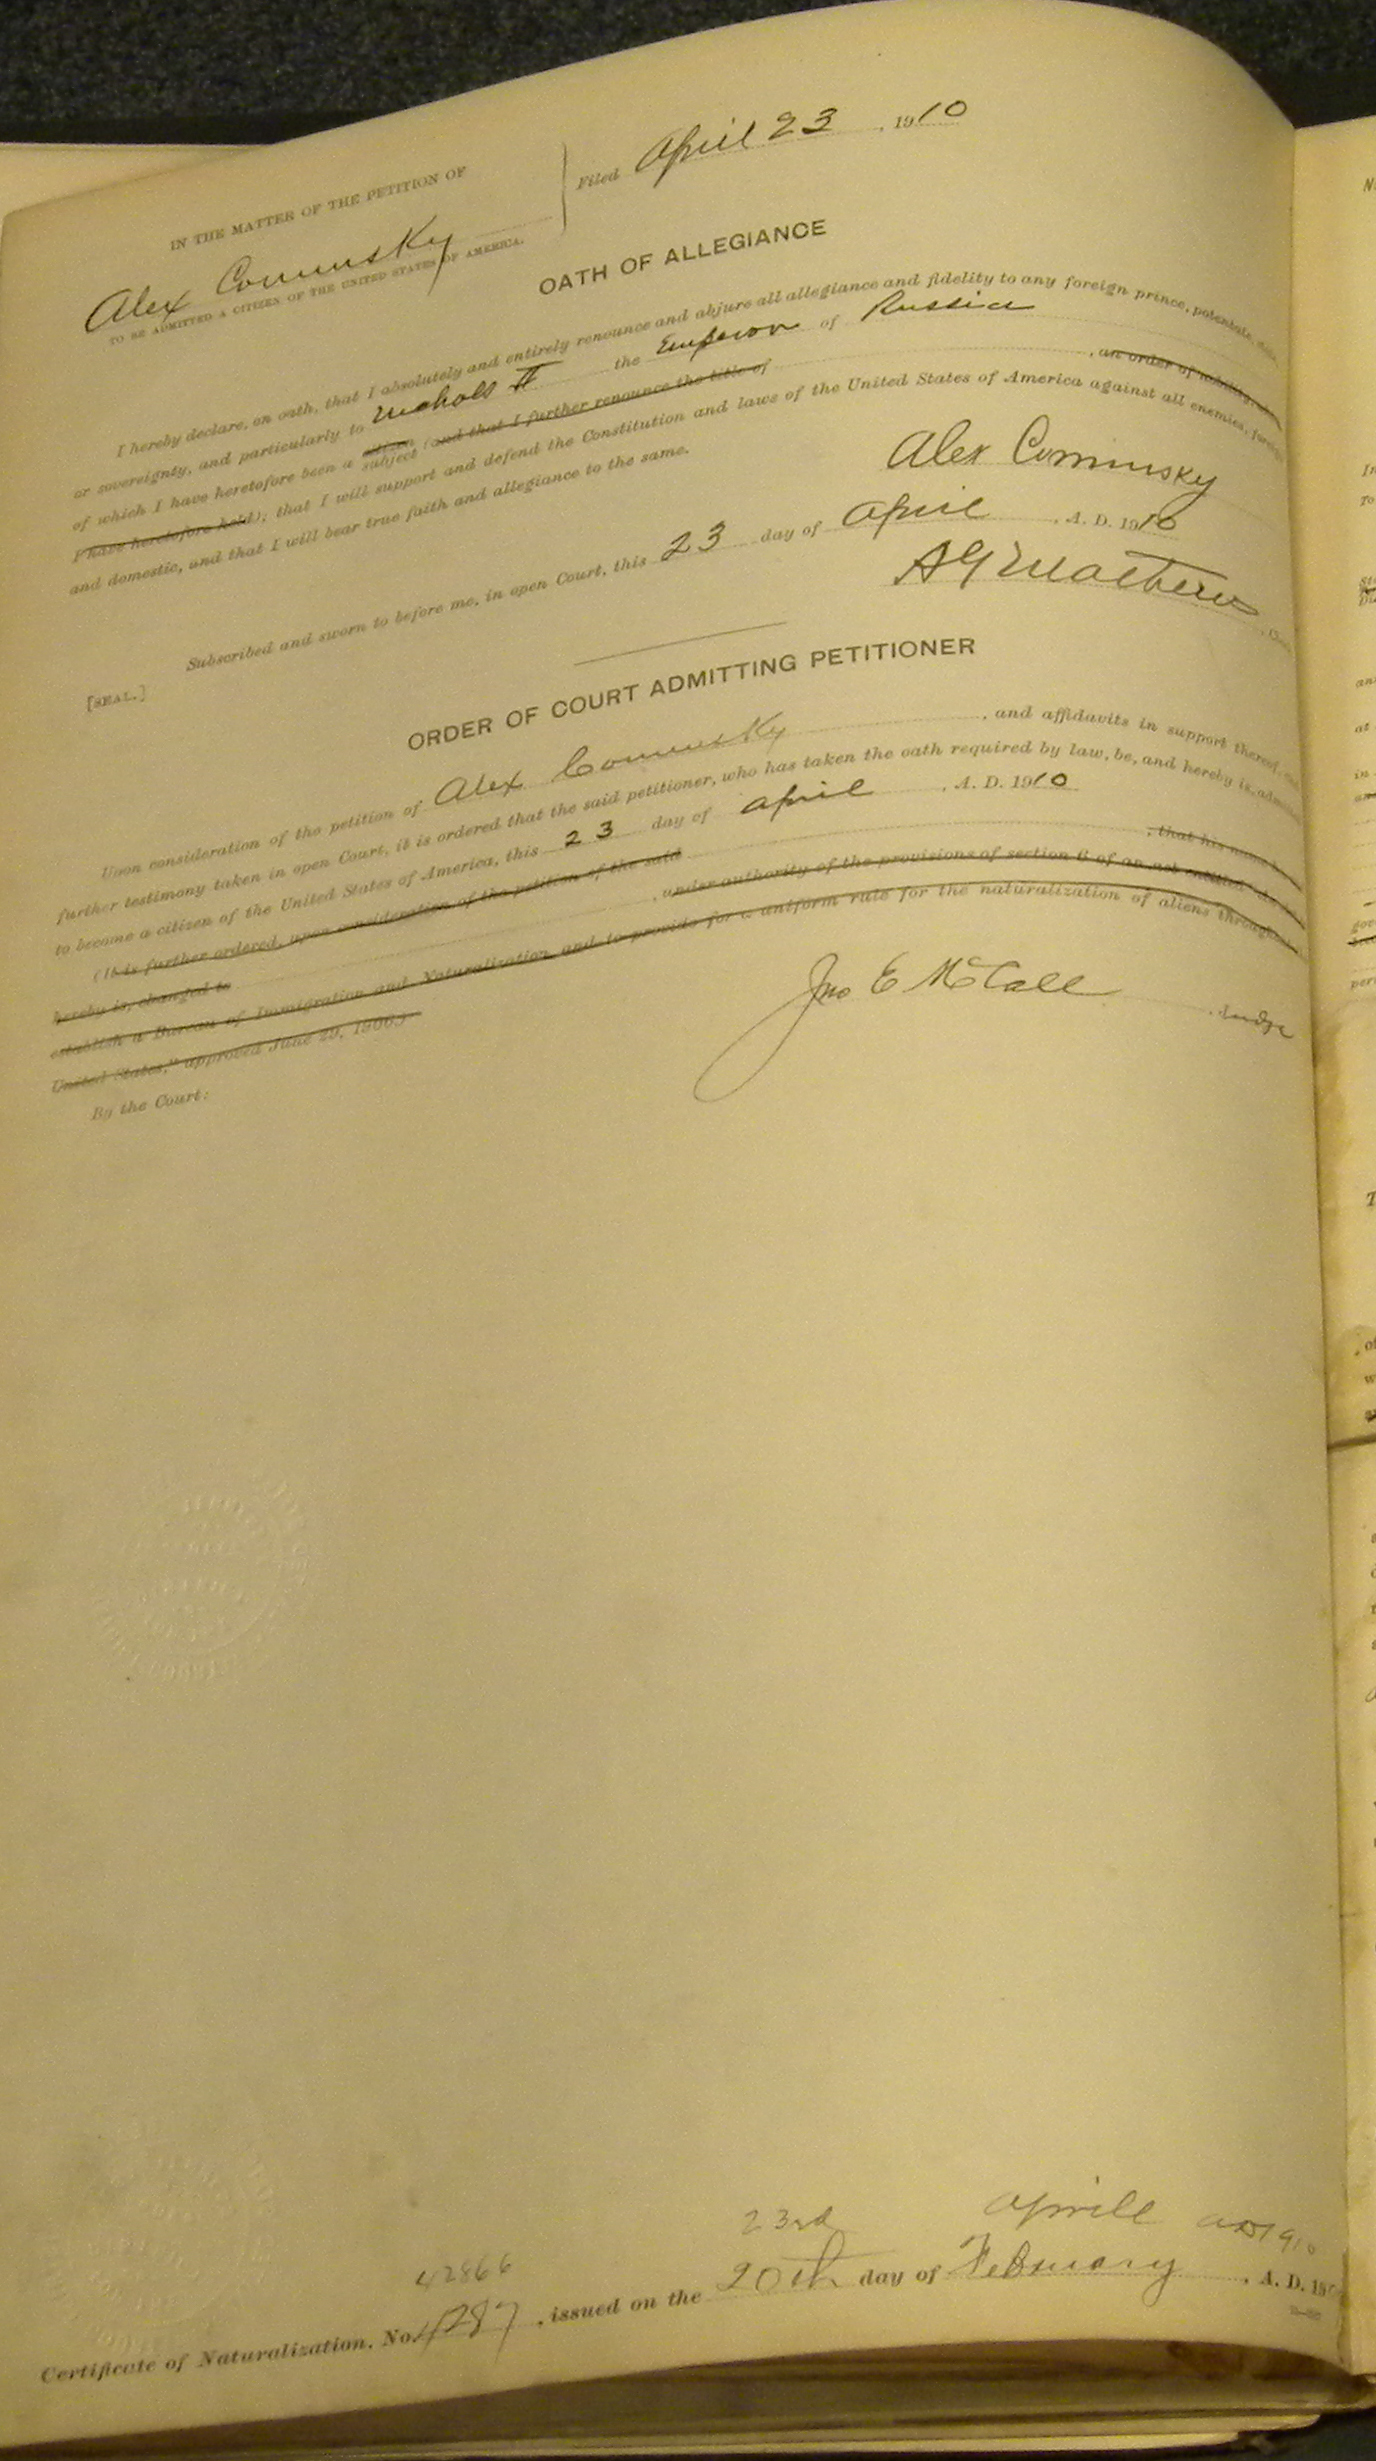 IN THE MATTER OF THE PETITION OF
Alex Cominsky
TO BE ADMITTED A CITIZEN OF THE UNITED STATES OF AMERICA.
Filed April 23, 1910
OATH OF ALLEGIANCE
I hereby declare, on oath, that I absolutely and entirely renounce and abjure all allegiance and fidelity to any foreign prince, potentate, state,
or sovereignty, and particularly to Nicholi II the Emperor of Russia
of which I have heretofore been a citizen subject (and that I further renounce the title of , an order of nobility, which
I have heretofore held); that I will support and defend the Constitution and laws of the United States of America against all enemies, foreign
and domestic, and that I will bear true faith and allegiance to the same.
Alex Cominsky
Subscribed and sworn to before me, in open Court, this 23 day of April, A. D. 1910
[SEAL.]
A G Mathews
ORDER OF COURT ADMITTING PETITIONER
Upon consideration of the petition of Alex Cominsky, and affidavits in support thereof, and
further testimony taken in open Court, it is ordered that the said petitioner, who has taken the oath required by law, be, and hereby is, admitted
to become a citizen of the United States of America, this 23 day of April, A. D. 1910
(It is further ordered, upon consideration of the petition of the said , that his name be,
hereby is, changed to , under authority of the provisions of section 6 of an act entitled
establish a Bureau of Immigration and Naturalization, and to provide for a uniform rule for the naturalization of aliens throughout
United States," approved June 29, 1906.)
By the Court:
Jno E McCall
, Judge
42866 23rd Aprill AD 1910
Certificate of Naturalization, No. 4287, issued on the 20th day of February, A. D. 19